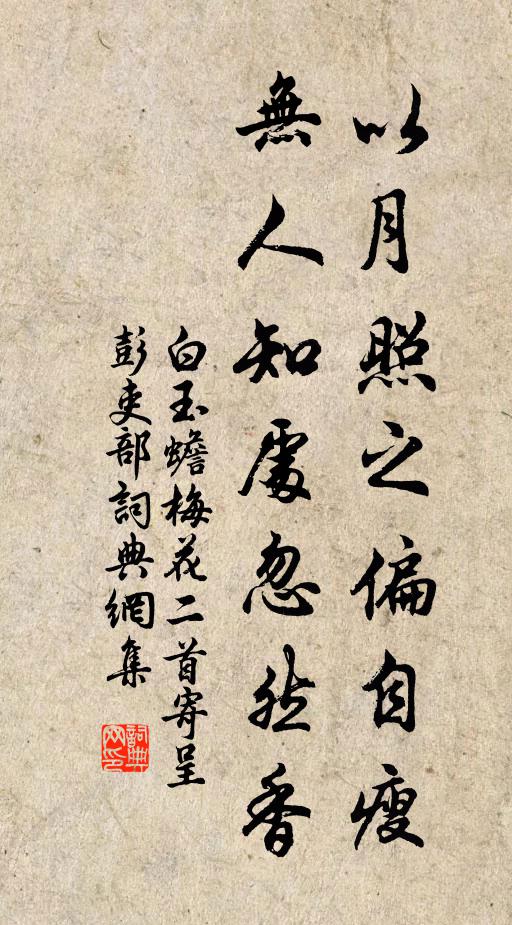 以月照之偏自瘦
無人知處忽然香
白玉蟾梅花二首寄呈
彭吏部詞典網集
詞典
网印